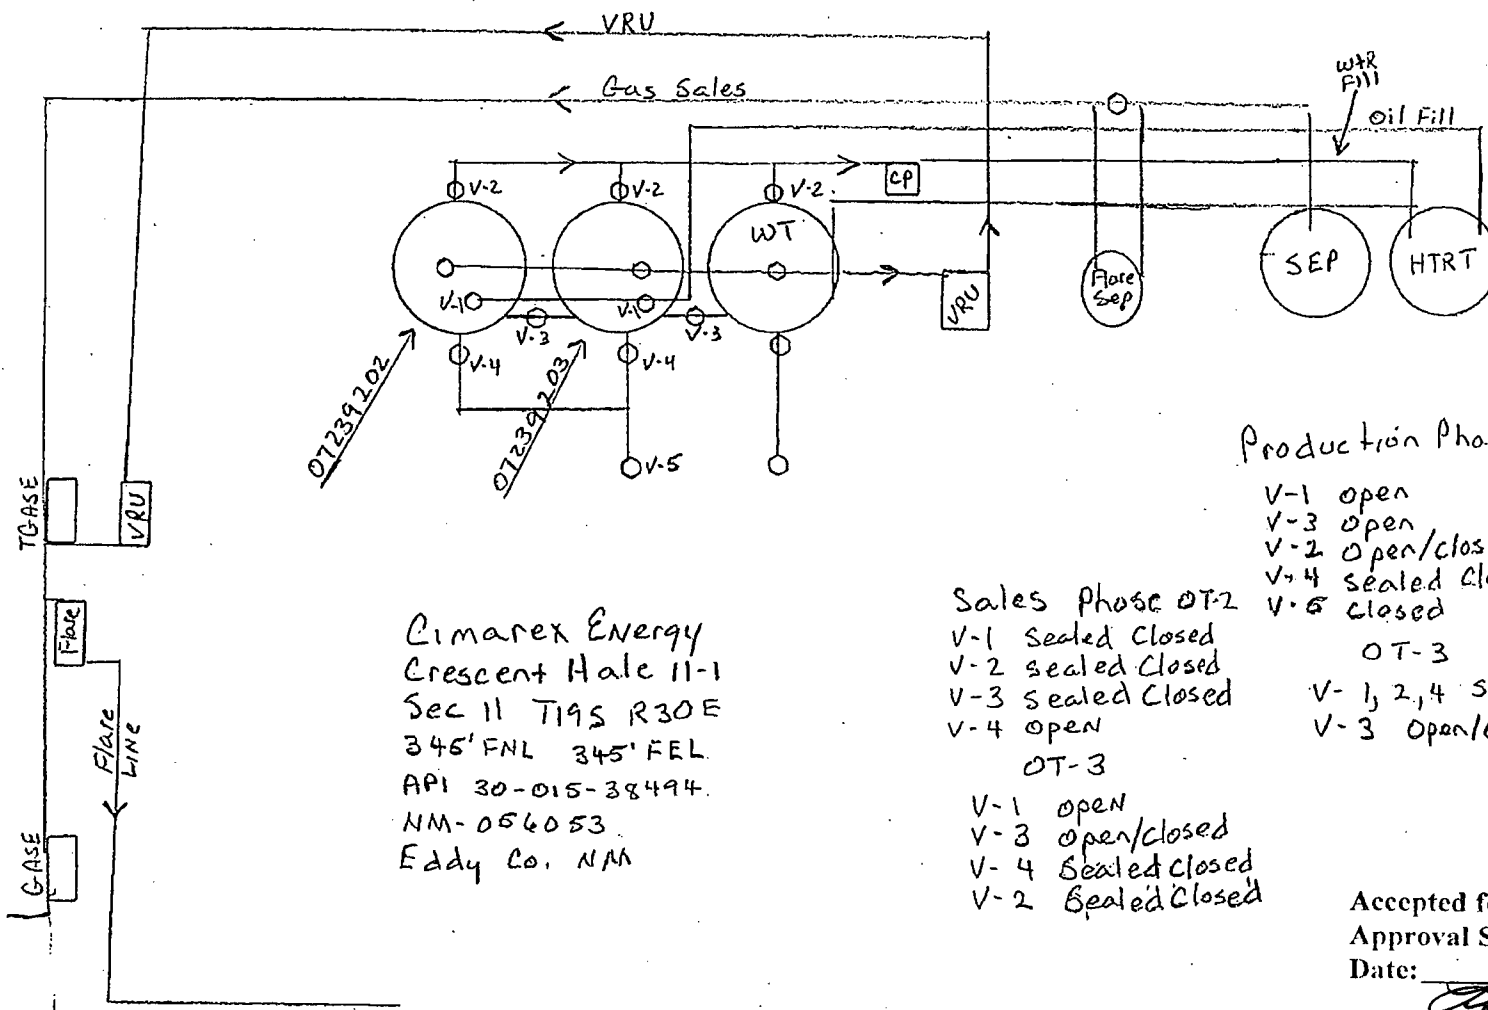 VRU
Gas Sales
WtR
Fill
Oil Fill
V-2
V-2
V-2
CP
WT
V-1
V-1
V-3
V-3
V-4
V-4
V-5
VRU
Flare
Sep
SEP
HTRT
07239202
07239203
TGASE
VRU
Flare
Flare
LINE
GASE
Cimarex Energy
Crescent Hale 11-1
Sec 11 T19S R30E
345' FNL 345' FEL
API 30-015-38494
NM-054053
Eddy Co. NM
Sales Phase OT-2
V-1 Sealed Closed
V-2 Sealed Closed
V-3 Sealed Closed
V-4 Open
OT-3
V-1 open
V-3 open/closed
V-4 Sealed Closed
V-2 Sealed Closed
Production Pha
V-1 open
V-3 open
V-2 open/clos
V-4 sealed Clo
V-5 closed
OT-3
V-1, 2, 4 S
V-3 Open/
Accepted f
Approval S
Date: